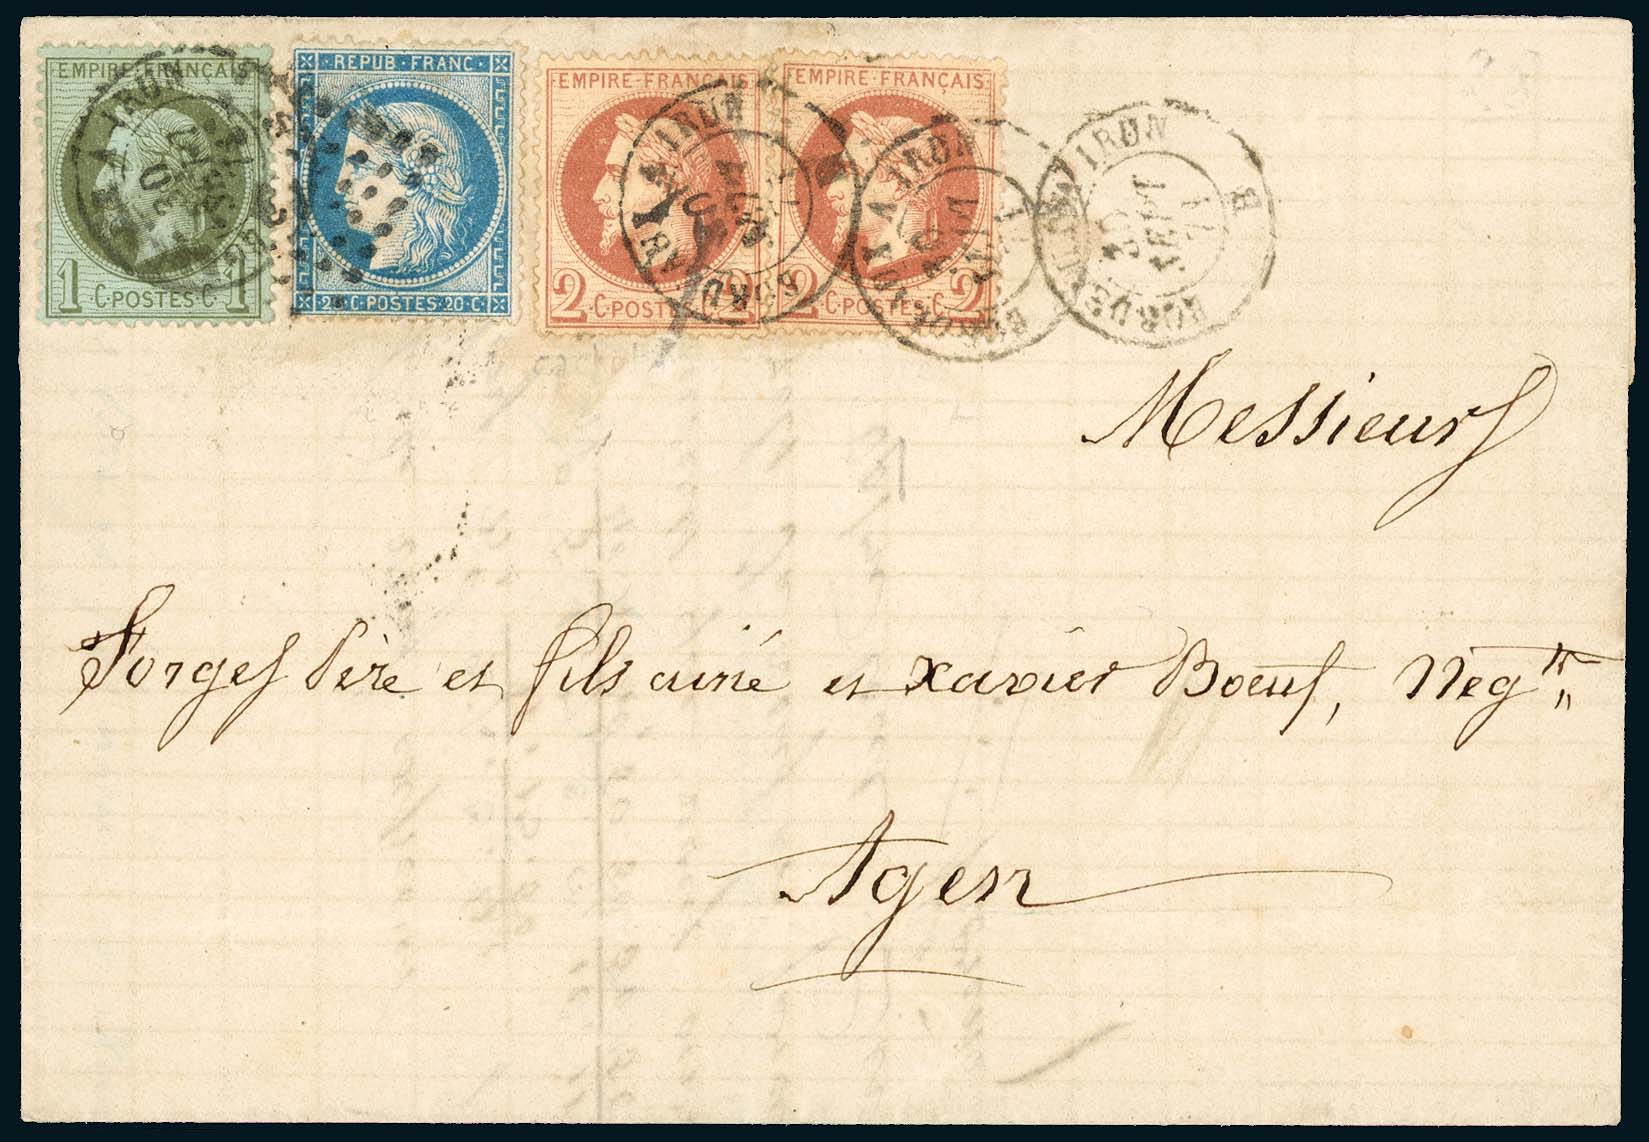 EMPIRE FRANÇAIS
1 C. POSTES C. 1
REPUB FRANC
20 C. POSTES 20 C.
EMPIRE FRANÇAIS
2 C. POSTES
EMPIRE FRANÇAIS
2 C. POSTES C. 2
IRUN
30
IRUN
BORD
IRUN
IRUN
30
SEPT
71
B
Messieurs
Forges Père et fils ainé et Xavier Boeuf, Neg.ts
Agen